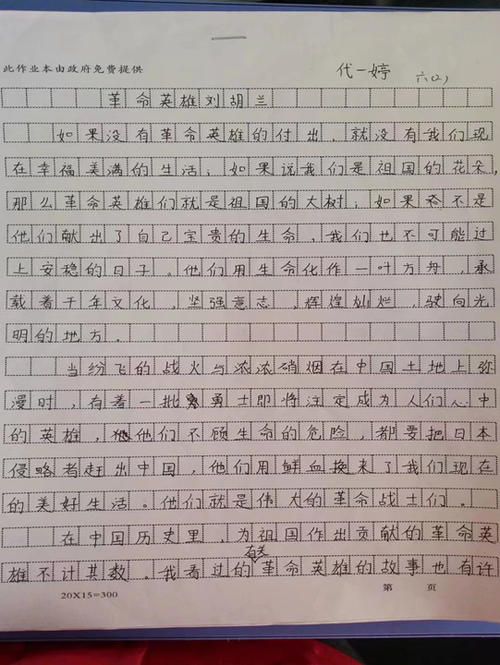 此作业本由政府免费提供
代一婷 六(2)
革命英雄刘胡兰
如果没有革命英雄的付出，就没有我们现
在幸福美满的生活；如果说我们是祖国的花朵，
那么革命英雄们就是祖国的大树；如果不是
他们献出了自己宝贵的生命，我们也不可能过
上安稳的日子。他们用生命化作一叶方舟，承
载着千年文化，坚强意志，辉煌灿烂，驶向光
明的地方。
当纷飞的战火与浓浓硝烟在中国土地上弥
漫时，有着一批勇士即将注定成为人们心中
的英雄，他们不顾生命的危险，都要把日本
侵略者赶出中国，他们用鲜血换来了我们现在
的美好生活。他们就是伟大的革命战士们。
在中国历史里，为祖国作出贡献的革命英
雄不计其数。我看过的有关革命英雄的故事也有许
20X15=300 第 页